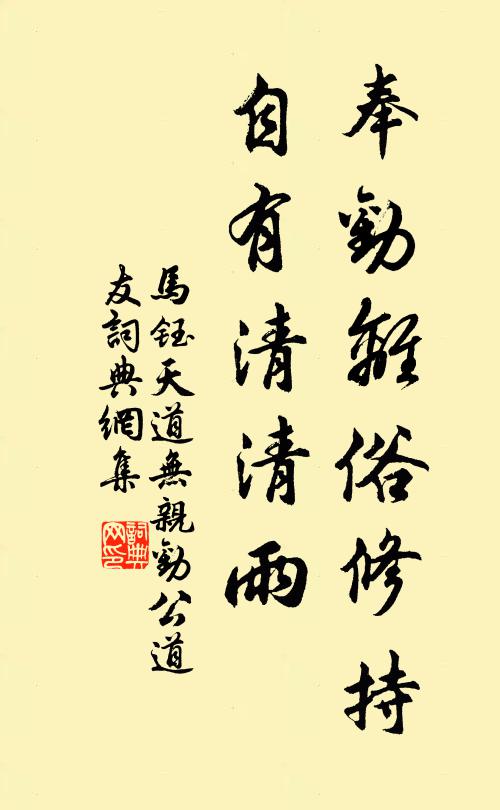 奉勸離俗修持
自有清清雨
馬鈺天道無親勸公道
友詞典網集
詞典網印